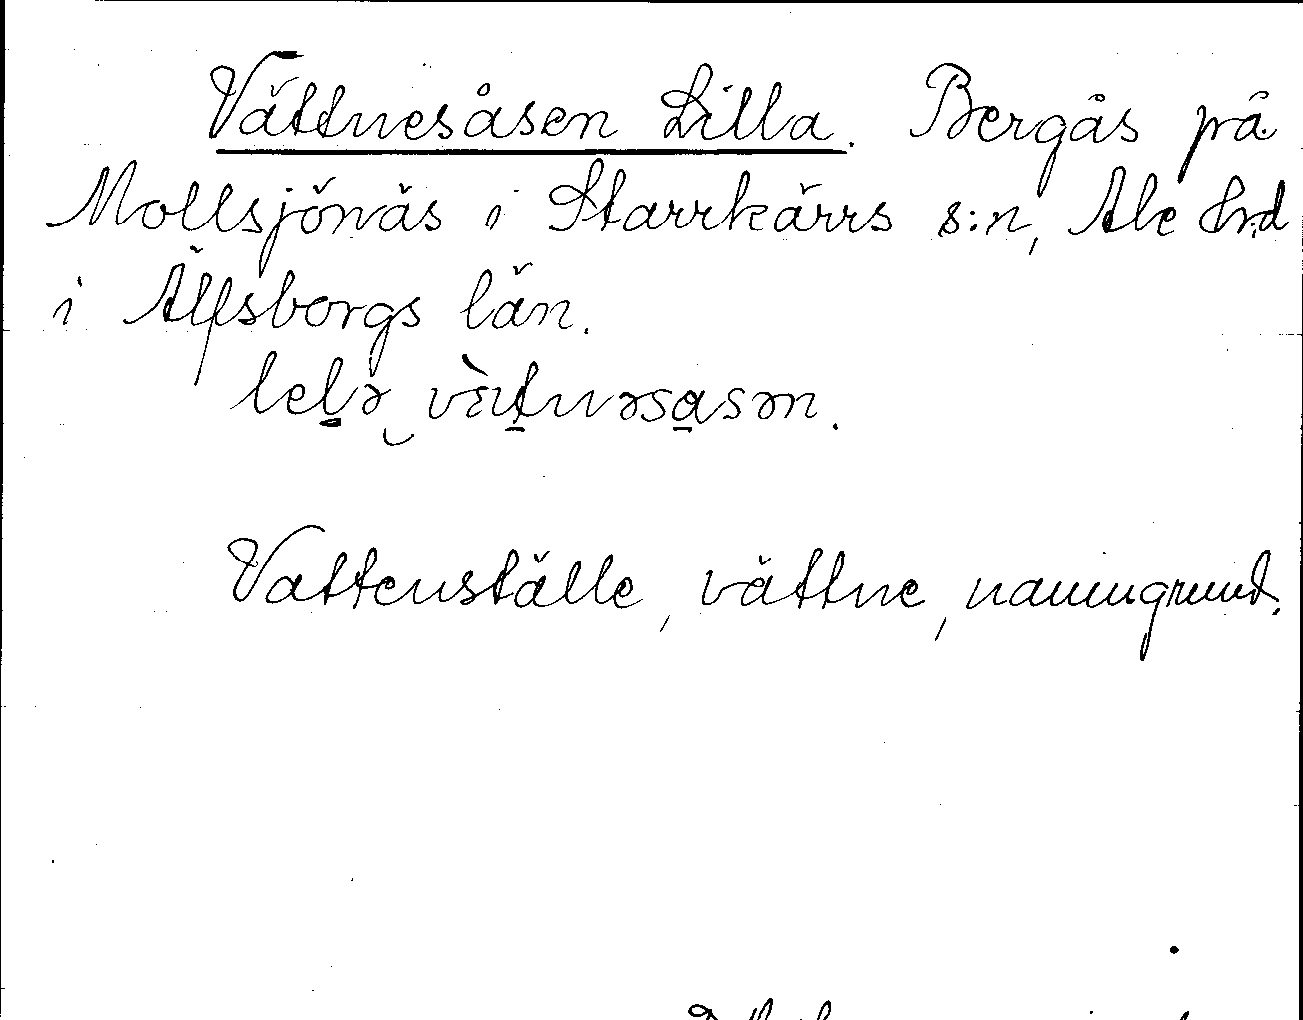 Vättnesåsen Lilla. Bergås på
Mollsjönäs i Starrkärrs s:n, Ale hrd
i Älfsborgs län.
lelə vætnəsasən.
Vattenställe, vättne, namngrund.